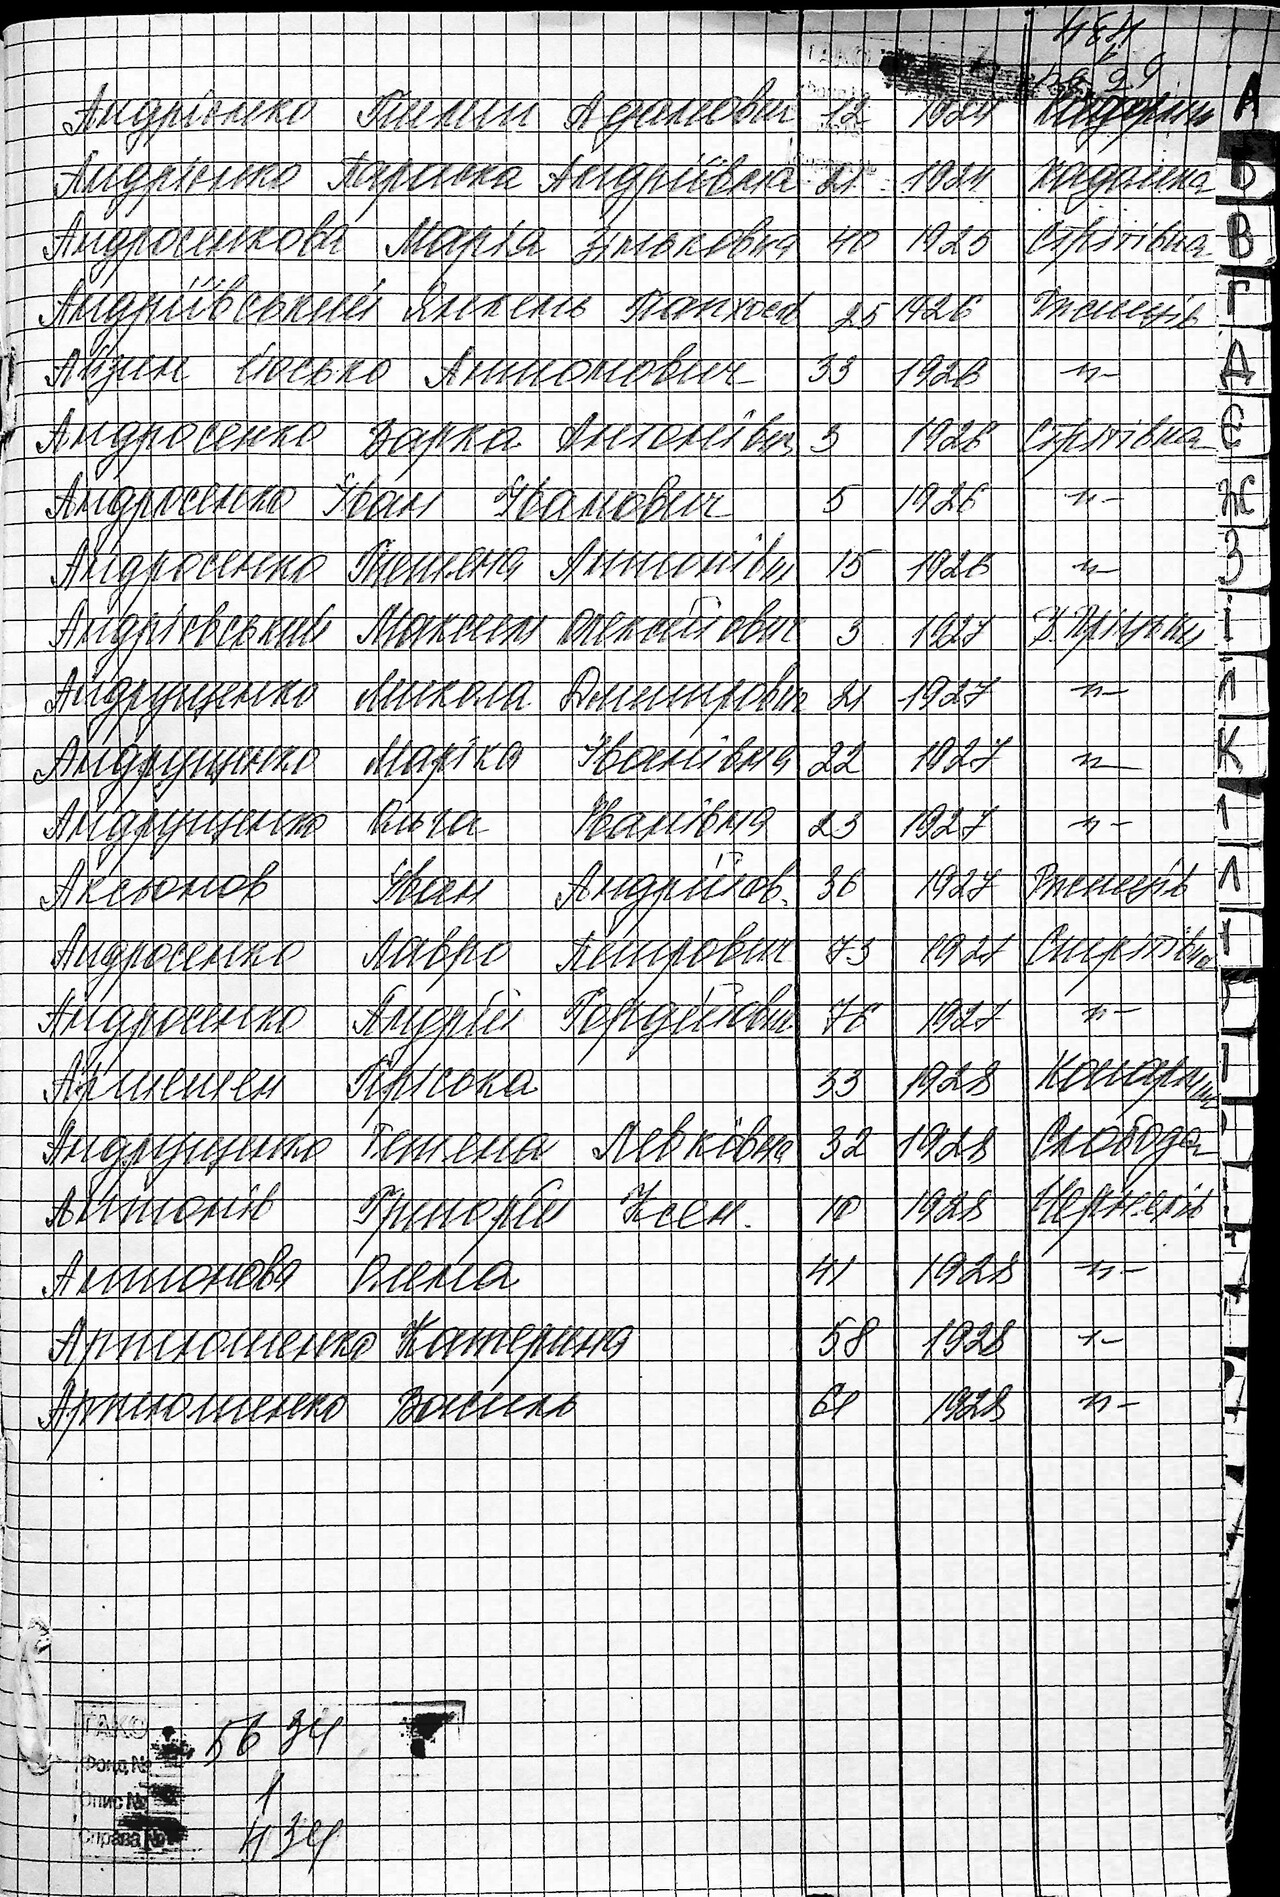 434
Андрієнко Адамович 12 1924
Андрієнко Параска Андріївна 21 1924
Андросенкова Марія 40 1925 Стрітівка
Андріївський Янкель 25 1926 Ржищів
Айзин Йосько Антонович 33 1926 -"-
Андросенко Варка Антонівна 3 1926 Стрітівка
Андросенко Іван Іванович 5 1926 -"-
Андросенко Тетяна Антонівна 15 1926 -"-
Андрієвський Максим Олексійович 3 1927
Андрущенко Микола Дмитрович 21 1927 -"-
Андрущенко Марійка Іванівна 22 1927 -"-
Андрущенко Ольга Іванівна 23 1927 -"-
Аксьонов Іван Андрійов. 36 1927 Ржищів
Андросенко Лавро Петрович 73 1927 Стрітівка
Андросенко Андрій Гордійович 76 1927 -"-
Пріська 33 1928
Андрущенко Тетяна Левківна 32 1928 Слобода
Антонів Григорій Ксен. 10 1928
Антонова Олена 41 1928 -"-
Артюшенко Катерина 58 1928 -"-
Артюшенко Василь 61 1928 -"-
А
Б
В
Г
Д
Є
Ж
З
І
К
Л
ГАКО
Фонд № 5634
Опис № 1
Справа № 434